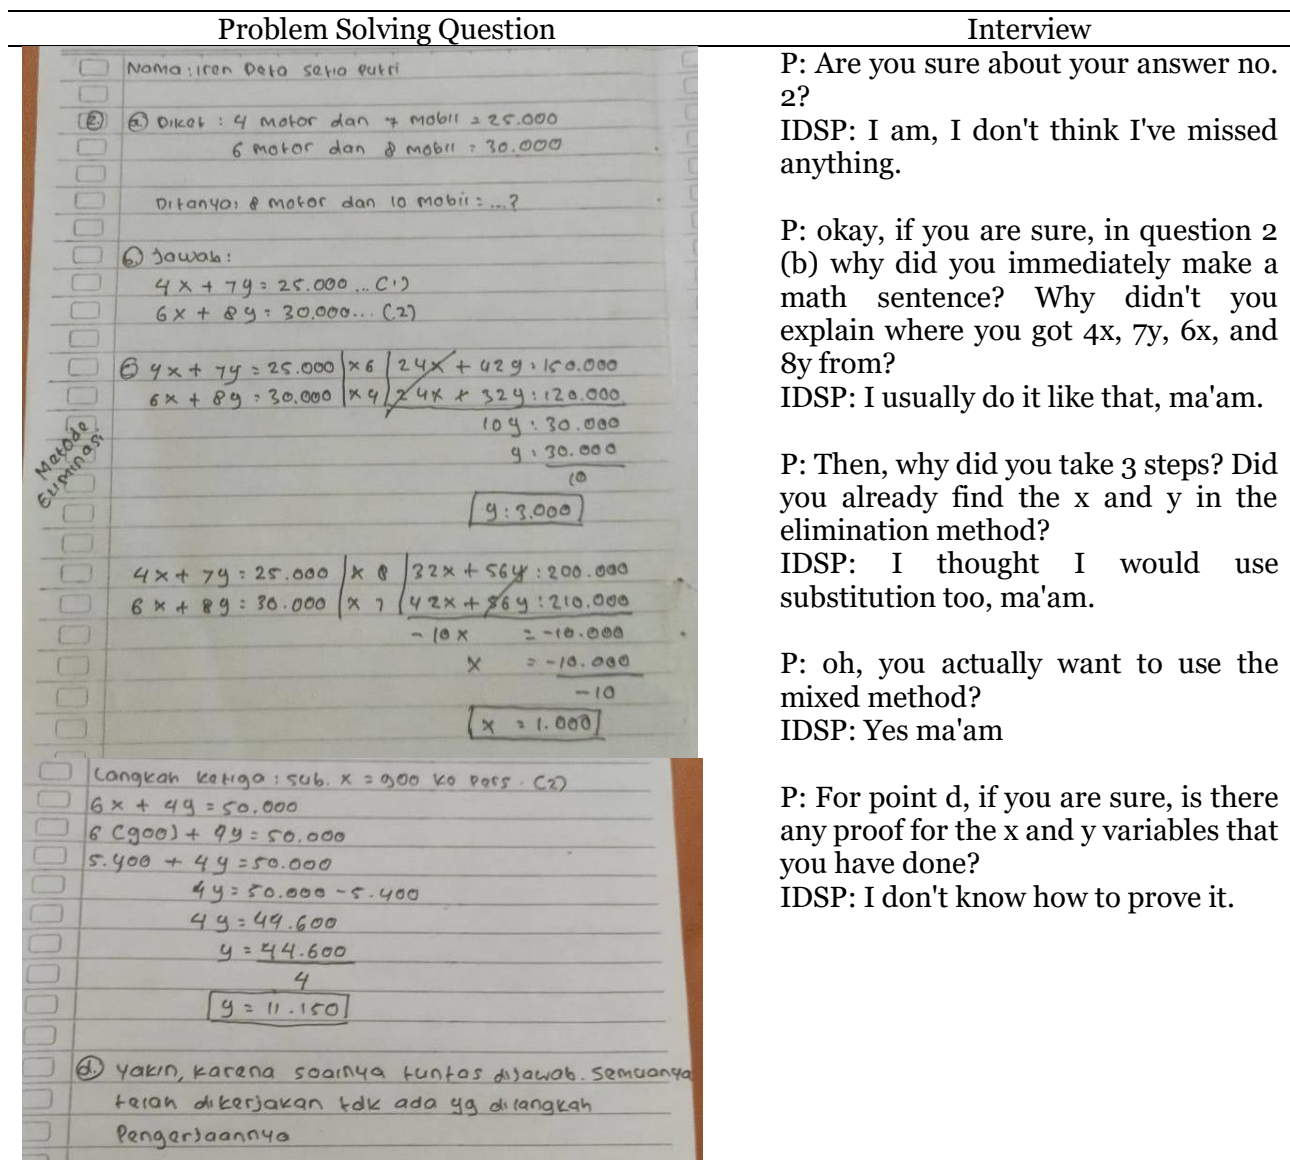 Problem Solving Question
Interview
Nama : Iren Deta Setia Putri
2. a) Diket : 4 motor dan 7 mobil = 25.000
6 motor dan 8 mobil = 30.000
Ditanya: 8 motor dan 10 mobil = ...?
b) Jawab :
4x + 7y = 25.000 ... (1)
6x + 8y = 30.000... (2)
c) 4x + 7y = 25.000 | x6 | 24x + 42y = 150.000
6x + 8y = 30.000 | x4 | 24x + 32y = 120.000
10y = 30.000
y = 30.000
10
y = 3.000
Metode
Eliminasi
4x + 7y = 25.000 | x 8 | 32x + 56y = 200.000
6x + 8y = 30.000 | x 7 | 42x + 56y = 210.000
-10x = -10.000
x = -10.000
-10
x = 1.000
Langkah ketiga : sub. x = 900 ke pers. (2)
6x + 4y = 50.000
6 (900) + 4y = 50.000
5.400 + 4y = 50.000
4y = 50.000 - 5.400
4y = 44.600
y = 44.600
4
y = 11.150
d. Yakin, karena soalnya tuntas dijawab. Semuanya
telah dikerjakan tdk ada yg dilangkah
Pengerjaannya
P: Are you sure about your answer no.
2?
IDSP: I am, I don't think I've missed
anything.
P: okay, if you are sure, in question 2
(b) why did you immediately make a
math sentence? Why didn't you
explain where you got 4x, 7y, 6x, and
8y from?
IDSP: I usually do it like that, ma'am.
P: Then, why did you take 3 steps? Did
you already find the x and y in the
elimination method?
IDSP: I thought I would use
substitution too, ma'am.
P: oh, you actually want to use the
mixed method?
IDSP: Yes ma'am
P: For point d, if you are sure, is there
any proof for the x and y variables that
you have done?
IDSP: I don't know how to prove it.